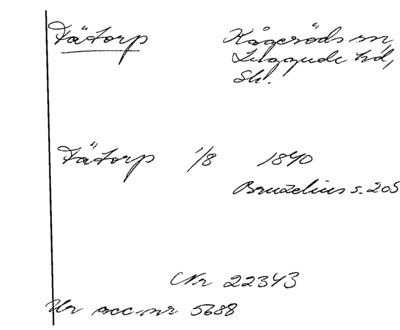 Tätorp Kågeröds sn,
Luggude hd,
Sk.
Tätorp 1/8 1840
Bruzelius s. 205
Nr 22343
Ur acc. nr 5688